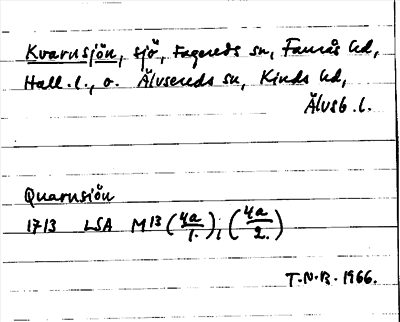 Kvarnsjön, sjö, Fagereds sn, Faurås hd,
Hall. l., o. Älvsereds sn, Kinds hd,
Älvsb. l.
Quarnsiön
1713 LSA M13 (4a/1.), (4a/2.)
T.N.B. 1966.